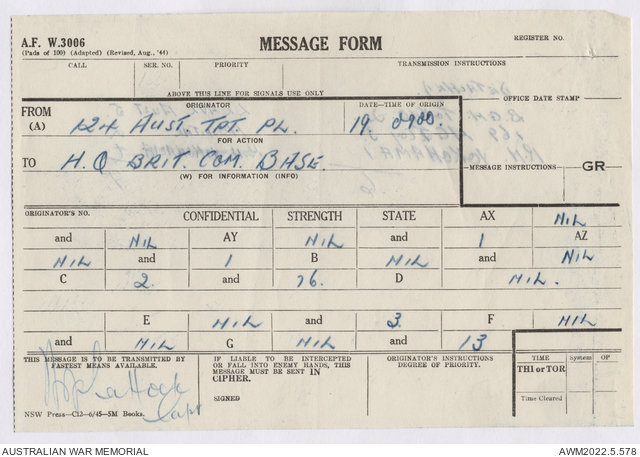 A.F. W.3006
(Pads of 100) (Adapted) (Revised, Aug., '44)
MESSAGE FORM
REGISTER NO.
CALL SER. NO. PRIORITY TRANSMISSION INSTRUCTIONS
ABOVE THIS LINE FOR SIGNALS USE ONLY
OFFICE DATE STAMP
FROM ORIGINATOR DATE–TIME OF ORIGIN
(A) 124 AUST. TPT. PL. 19 0900.
FOR ACTION
TO H.Q BRIT. COM. BASE.
(W) FOR INFORMATION (INFO)
MESSAGE INSTRUCTIONS GR
ORIGINATOR'S NO. CONFIDENTIAL STRENGTH STATE AX NIL
and NIL AY NIL and 1 AZ
NIL and 1 B NIL and NIL
C 2. and 76. D NIL.
E NIL and 3. F NIL
and NIL G NIL and 13
THIS MESSAGE IS TO BE TRANSMITTED BY FASTEST MEANS AVAILABLE.
IF LIABLE TO BE INTERCEPTED OR FALL INTO ENEMY HANDS, THIS MESSAGE MUST BE SENT IN CIPHER.
SIGNED
ORIGINATOR'S INSTRUCTIONS DEGREE OF PRIORITY.
TIME System OP
THI or TOR
Time Cleared
Capt
NSW Press—C12—6/45—5M Books.
AUSTRALIAN WAR MEMORIAL AWM2022.5.578